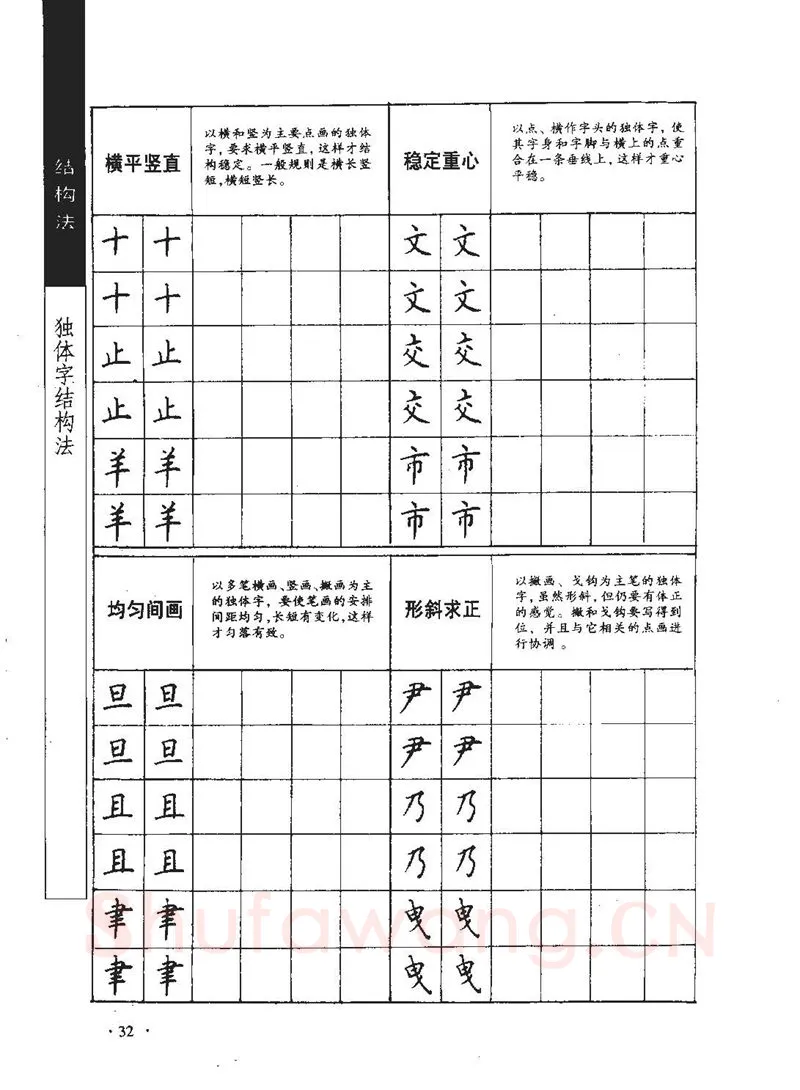 结构法
独体字结构法
横平竖直
以横和竖为主要点画的独体
字，要求横平竖直，这样才结
构稳定。一般规则是横长竖
短，横短竖长。
十 十
十 十
止 止
止 止
羊 羊
羊 羊
稳定重心
以点、横作字头的独体字，使
其字身和字脚与横上的点重
合在一条垂线上，这样才重心
平稳。
文 文
文 文
交 交
交 交
市 市
市 市
均匀间画
以多笔横画、竖画、撇画为主
的独体字，要使笔画的安排
间距均匀，长短有变化，这样
才匀落有致。
旦 旦
旦 旦
且 且
且 且
聿 聿
聿 聿
形斜求正
以撇画、戈钩为主笔的独体
字，虽然形斜，但仍要有体正
的感觉。撇和戈钩要写得到
位、并且与它相关的点画进
行协调。
尹 尹
尹 尹
乃 乃
乃 乃
曳 曳
曳 曳
Shufawang.CN
·32·